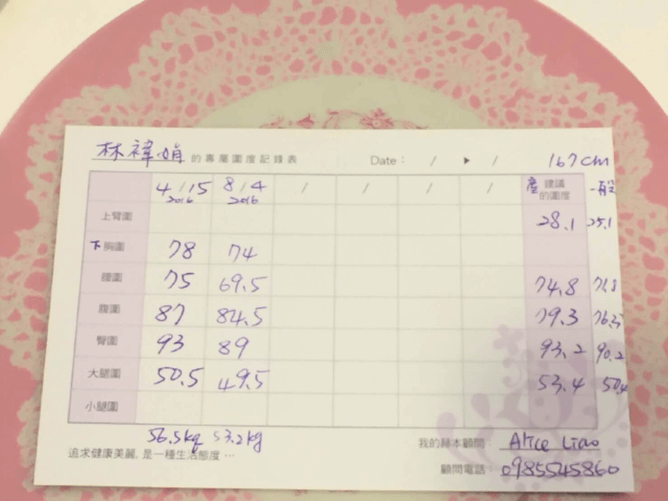 林禕娟 的專屬圍度記錄表 Date： / ▸ / 167cm
4/15 2016 8/4 2016 / / / / 產 建議的圍度 一般
上臂圍 28.1 25.1
下胸圍 78 74
腰圍 75 69.5 74.8 71.8
腹圍 87 84.5 79.3 76.3
臀圍 93 89 93.2 90.2
大腿圍 50.5 49.5 53.4 50.4
小腿圍
56.5kg 53.2kg
追求健康美麗, 是一種生活態度 … 我的赫本顧問： Alice Liao
顧問電話： 0985545860